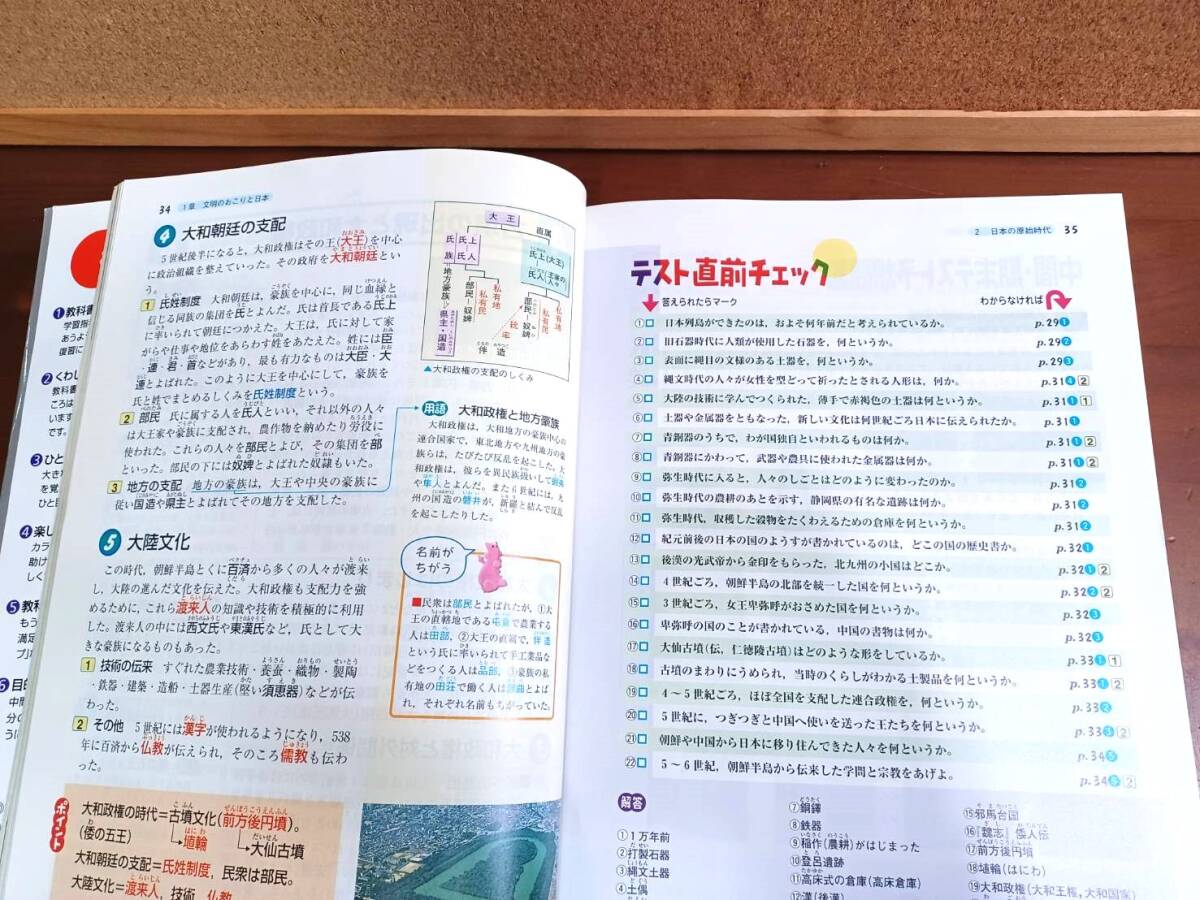 34 1章 文明のおこりと日本
4 大和朝廷の支配
5世紀後半になると，大和政権はその王(大王)を中心
に政治組織を整えていった。その政府を大和朝廷とい
う。
1 氏姓制度 大和朝廷は，豪族を中心に，同じ血縁と
信じる同族の集団を氏とよんだ。氏は首長である氏上
に率いられて朝廷につかえた。大王は，氏に対して家
がらや仕事や地位をあらわす姓をあたえた。姓には臣
・連・君・首などがあり，最も有力なものは大臣・大
連とよばれた。このように大王を中心にして，豪族を
氏と姓でまとめるしくみを氏姓制度という。
2 部民 氏に属する人を氏人といい，それ以外の人々
は大王家や豪族に支配され，農作物を納めたり労役に
使われた。これらの人々を部民とよび，その集団を部
といった。部民の下には奴婢とよばれた奴隷もいた。
3 地方の支配 地方の豪族は，大王や中央の豪族に
従い国造や県主とよばれてその地方を支配した。
大王
直属
氏族
氏上
氏人
氏上(大王)
氏人(王家の人々)
地方豪族
県主・国造
部民・奴婢
私有民
私有地
部民・奴婢
私有民
私有地
統率
伴造
▲大和政権の支配のしくみ
用語 大和政権と地方豪族
大和政権は，大和地方の豪族中心の
連合国家で，東北地方や九州地方の豪
族らは，たびたび反乱を起こした。大
和政権は，彼らを異民族扱いして蝦夷
や隼人とよんだ。また6世紀には，九
州の国造の磐井が，新羅と結んで反乱
を起こしたりした。
5 大陸文化
この時代，朝鮮半島とくに百済から多くの人々が渡来
し，大陸の進んだ文化を伝えた。大和政権も支配力を強
めるために，これら渡来人の知識や技術を積極的に利用
した。渡来人の中には西文氏や東漢氏など，氏として大
きな豪族になるものもあった。
1 技術の伝来 すぐれた農業技術・養蚕・織物・製陶
・鉄器・建築・造船・土器生産(堅い須恵器)などが伝
わった。
2 その他 5世紀には漢字が使われるようになり，538
年に百済から仏教が伝えられ，そのころ儒教も伝わ
った。
名前が
ちがう
■民衆は部民とよばれたが，①大
王の直轄地である屯倉で農業する
人は田部，②大王の直属で，伴造
という氏に率いられて手工業品な
どをつくる人は品部，③豪族の私
有地の田荘で働く人は部曲とよば
れ，それぞれ名前もちがっていた。
ポイント
大和政権の時代＝古墳文化(前方後円墳)。
(倭の五王)
埴輪
大仙古墳
大和朝廷の支配＝氏姓制度，民衆は部民。
大陸文化＝渡来人，技術，仏教
2 日本の原始時代 35
テスト直前チェック
答えられたらマーク
わからなければ
① 日本列島ができたのは，およそ何年前だと考えられているか。 p.29 1
② 旧石器時代に人類が使用した石器を，何というか。 p.29 2
③ 表面に縄目の文様のある土器を，何というか。 p.29 3
④ 縄文時代の人々が女性を型どって祈ったとされる人形は，何か。 p.31 4 2
⑤ 大陸の技術に学んでつくられた，薄手で赤褐色の土器は何というか。 p.31 1 1
⑥ 土器や金属器をともなった，新しい文化は何世紀ごろ日本に伝えられたか。 p.31 1
⑦ 青銅器のうちで，わが国独自といわれるものは何か。 p.31 1 2
⑧ 青銅器にかわって，武器や農具に使われた金属器は何か。 p.31 1 2
⑨ 弥生時代に入ると，人々のしごとはどのように変わったのか。 p.31 2
⑩ 弥生時代の農耕のあとを示す，静岡県の有名な遺跡は何か。 p.31 2
⑪ 弥生時代，収穫した穀物をたくわえるための倉庫を何というか。 p.31 2
⑫ 紀元前後の日本の国のようすが書かれているのは，どこの国の歴史書か。 p.32 1
⑬ 後漢の光武帝から金印をもらった，北九州の小国はどこか。 p.32 1 2
⑭ 4世紀ごろ，朝鮮半島の北部を統一した国を何というか。 p.32 2 2
⑮ 3世紀ごろ，女王卑弥呼がおさめた国を何というか。 p.32 3
⑯ 卑弥呼の国のことが書かれている，中国の書物は何か。 p.32 3
⑰ 大仙古墳(伝，仁徳陵古墳)はどのような形をしているか。 p.33 1 1
⑱ 古墳のまわりにうめられ，当時のくらしがわかる土製品を何というか。 p.33 1 2
⑲ 4～5世紀ごろ，ほぼ全国を支配した連合政権を，何というか。 p.33 2
⑳ 5世紀に，つぎつぎと中国へ使いを送った王たちを何というか。 p.33 3 2
㉑ 朝鮮や中国から日本に移り住んできた人々を何というか。 p.34 5
㉒ 5～6世紀，朝鮮半島から伝来した学問と宗教をあげよ。 p.34 5 2
解答
①1万年前
②打製石器
③縄文土器
④土偶
⑦銅鐸
⑧鉄器
⑨稲作(農耕)がはじまった
⑩登呂遺跡
⑪高床式の倉庫(高床倉庫)
⑫漢(後漢)
⑮邪馬台国
⑯『魏志』倭人伝
⑰前方後円墳
⑱埴輪(はにわ)
⑲大和政権(大和王権，大和国家)